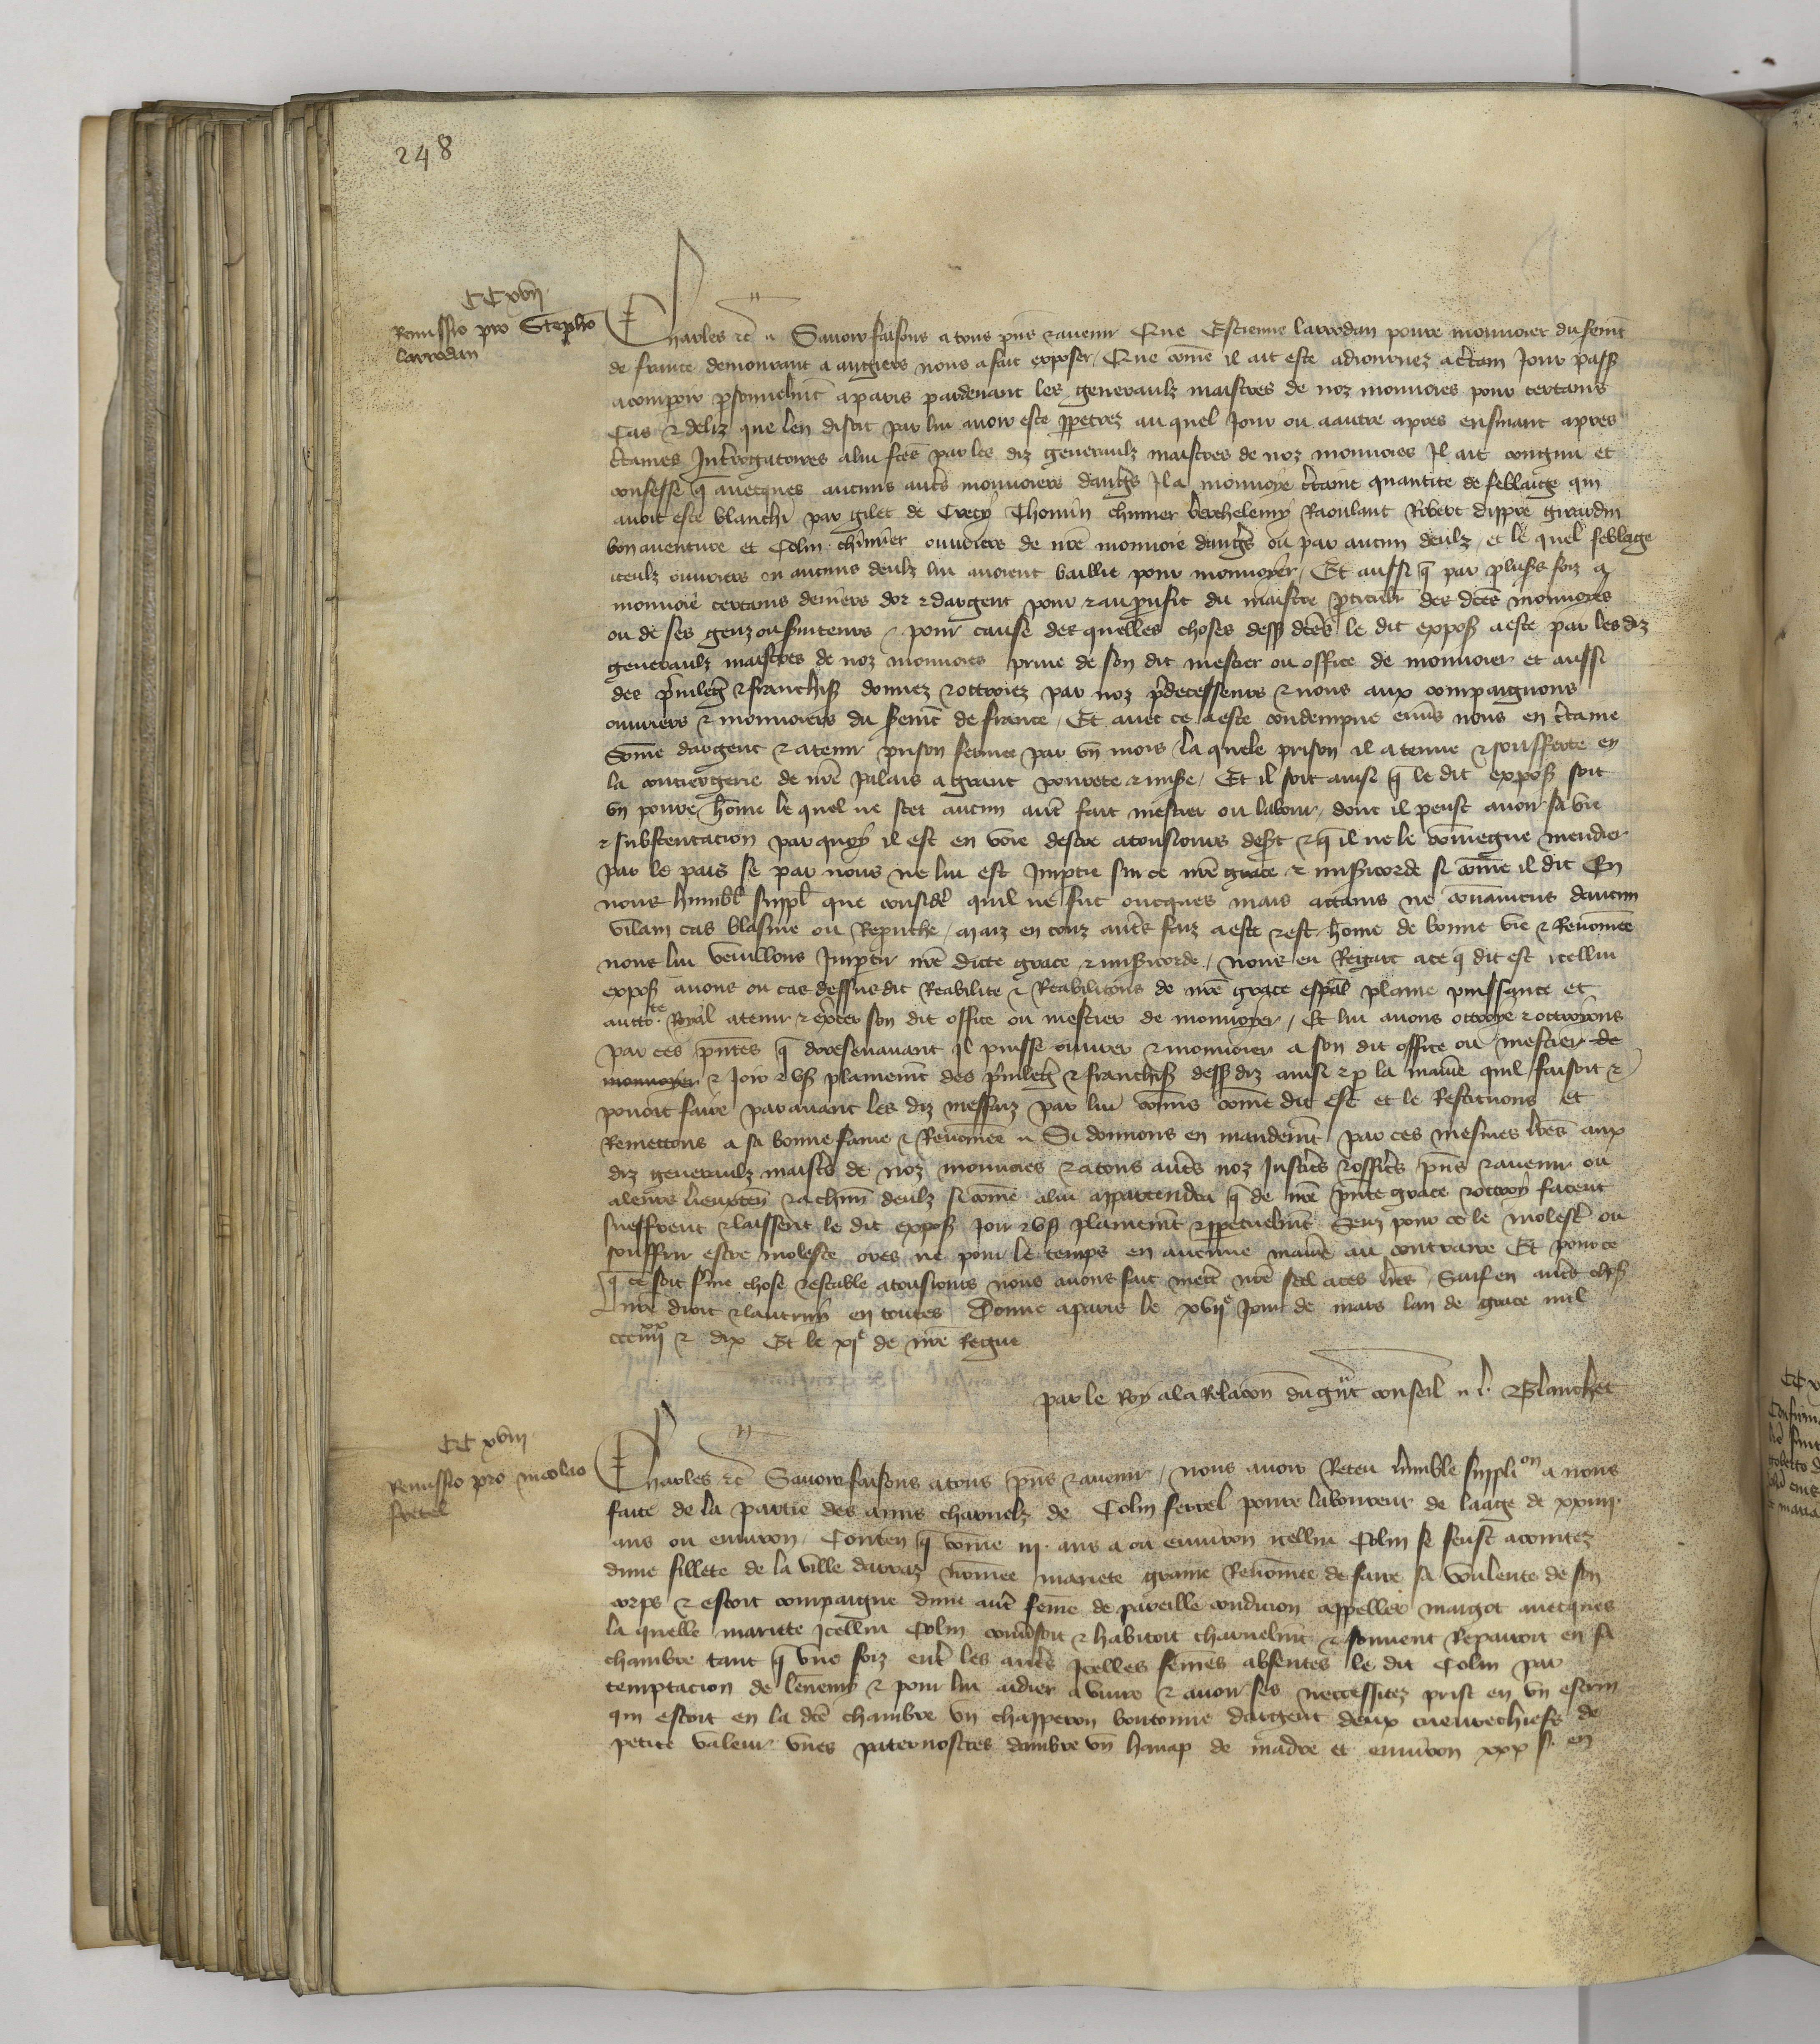 248
CC xvii.
Remissio pro Stepho
larrodan
Charles etc. Savoir faisons a tous pñs et avenir Que Estienne larrodan povre monnoier du serment
de france demourant a angiers nous a fait exposer, Que cõme il ait este adiournez a c̃tain jour passe
a comparoir personnelmt a paris pardevant les generaulz maistres de noz monnoies pour certains
Cas et deliz que len disoit par lui avoir este ppetrez au quel jour ou a autre apres ensuiant apres
c̃taines Interrogatoires a lui fc̃es par les diz generaulz maistres de noz monnoies Il ait congnu et
confesse q̃ avecques aucuns aut̃s monnoiers dang̃s Il a monnoye c̃taine quantite de feblaige qui
avoit este blanchi par gilet de Crecy Thomin chinner berthelemy Raoulant Robert dippre girardin
bonaventure et Colin chinner ouvriers de nr̃e monnoie dang̃s ou par aucun deulz, et le quel feblage
iceulz ouvriers ou aucuns deulz lui avoient baillie pour monnoyer, Et aussi q̃ par plus̃s foiz a
monnoie certains deniers dor et dargent pour et au proufit du maistre particul̃r des dc̃es monnoyes
ou de ses genz ou s̃viteurs, et pour cause des quelles choses dess̃ dc̃es le dit expos̃ a este par les diz
generaulz maistres de noz monnoies prive de son dit mestier ou office de monnoier et aussi
des privileg̃ et franchis̃ donnez et ottroiez par noz p̃decesseurs et nous aux compaignons
ouvriers et monnoiers du serm̃t de france, Et avec ce a este condempne env̄s nous en c̃taine
Some dargent et a tenir prison fermee par un mois la quele prison il a tenue et soufferte en
la conciergerie de nr̃e Palais a grant povrete et mis̃e, Et il soit ainsi q̃ le dit expos̃ soit
un povre hõme le quel ne scet aucun aut̃ fait mestier ou labour, dont il peust avoir sa vie
et substentacion par quoy il est en voie destre a tousiours des̃t et q̃ il ne le conviegne mendier
par le pais se par nous ne lui est Imp̃ti sur ce nr̃e grace et mis̃icorde si cõme il dit En
nous humbl̃ suppl̃ que consider̃ quil ne fut oncques mais attains ne convaincus daucun
vilain cas blasme ou Reprouche, maiz en touz aut̃s faiz a este et est hõme de bonne vie et Renõmee
nous lui veuillons Imp̃tir nr̃e dicte grace et mis̃icorde, nous en Regart a ce q̃ dit est icellui
expos̃ avons ou cas dessusdit Reabilite et Reabilitons de nr̃e grace esp̃al plaine puissance et
auttote Royal a tenir et exc̃er son dit office ou mestier de monnoyer, Et lui avons ottroye et ottroyons
par ces p̃ntes q̃ doresenavant il puisse ouvrer et monnoier a son dit office ou mestier de
monnoyer et Joir et us̃ plainem̃t des privileg̃ et franchis̃ dess̃ diz ainsi et p la manie quil faisoit et
povoit faire paravant les diz meffaiz par lui cõmis cõme dit est et le Restituons et
Remettons a sa bonne fame et Renõmee. Si donnons en mandem̃t par ces mesmes lr̃es aux
diz generaulz maist̃s de noz monnoies et a tous aut̃s noz Justic̃s et offic̃s p̃ns et avenir ou
a leurs lieuxten̄ et a chũn deulz si cõme a lui appartendra q̃ de nr̃e p̃nte grace et ottroy facent
sueffrent et laissent le dit expos̃ Joir et us̃ plainem̃t et ppetuelm̃t Senz pour ce le molest̃ ou
souffrir estre moleste ores ne pour le temps en aucune manie au contraire Et pour ce
q̃ ce soit f̃me chose et estable a tousiours nous avons fait mett̃ nr̃e scel a ces lr̃es, Sauf en aut̃s chos̃
nr̃e droit et lautruy en toutes. Donne a paris le xviie Jour de mars lan de grace mil
ccciiiixx et dix Et le xie de nr̃e Regne
par le Roy a la Relacon du g̃nt conseil. l. Blanchet
CC xviii.
Remissio pro nicolao
fretel
Charles etc. Savoir faisons a tous p̃ns et avenir, nous avoir Receu lumble supplion a nous
faite de la partie des amis charnelz de Colin fretel povre laboureur de laage de xxiiii.
ans ou environ, Conten̄ q̃ cõme iii. ans a ou environ icellui Colin se feust acointez
dune fillete de la ville darraz nõmee mariete graine Renõmee de faire sa voulente de son
corps et estoit compaigne dune aut̃ feme de pareille condicion appellee margot avecques
la quelle mariete Icellui Colin conv̄soit et habitoit charnelm̃t et souvent Repairoit en sa
chambre tant q̃ une foiz ent̃ les aut̃s Icelles fem̃es absentes le dit Colin par
temptacion de lennemy et pour lui aidier a vivre et avoir ses neccessitez prist en un escrin
qui estoit en la dc̃e chambre un chapperon boutonne dargent deux cuevrechiefs de
petite valeur unes paternostres dambre un hanap de madre et environ xxx s. en